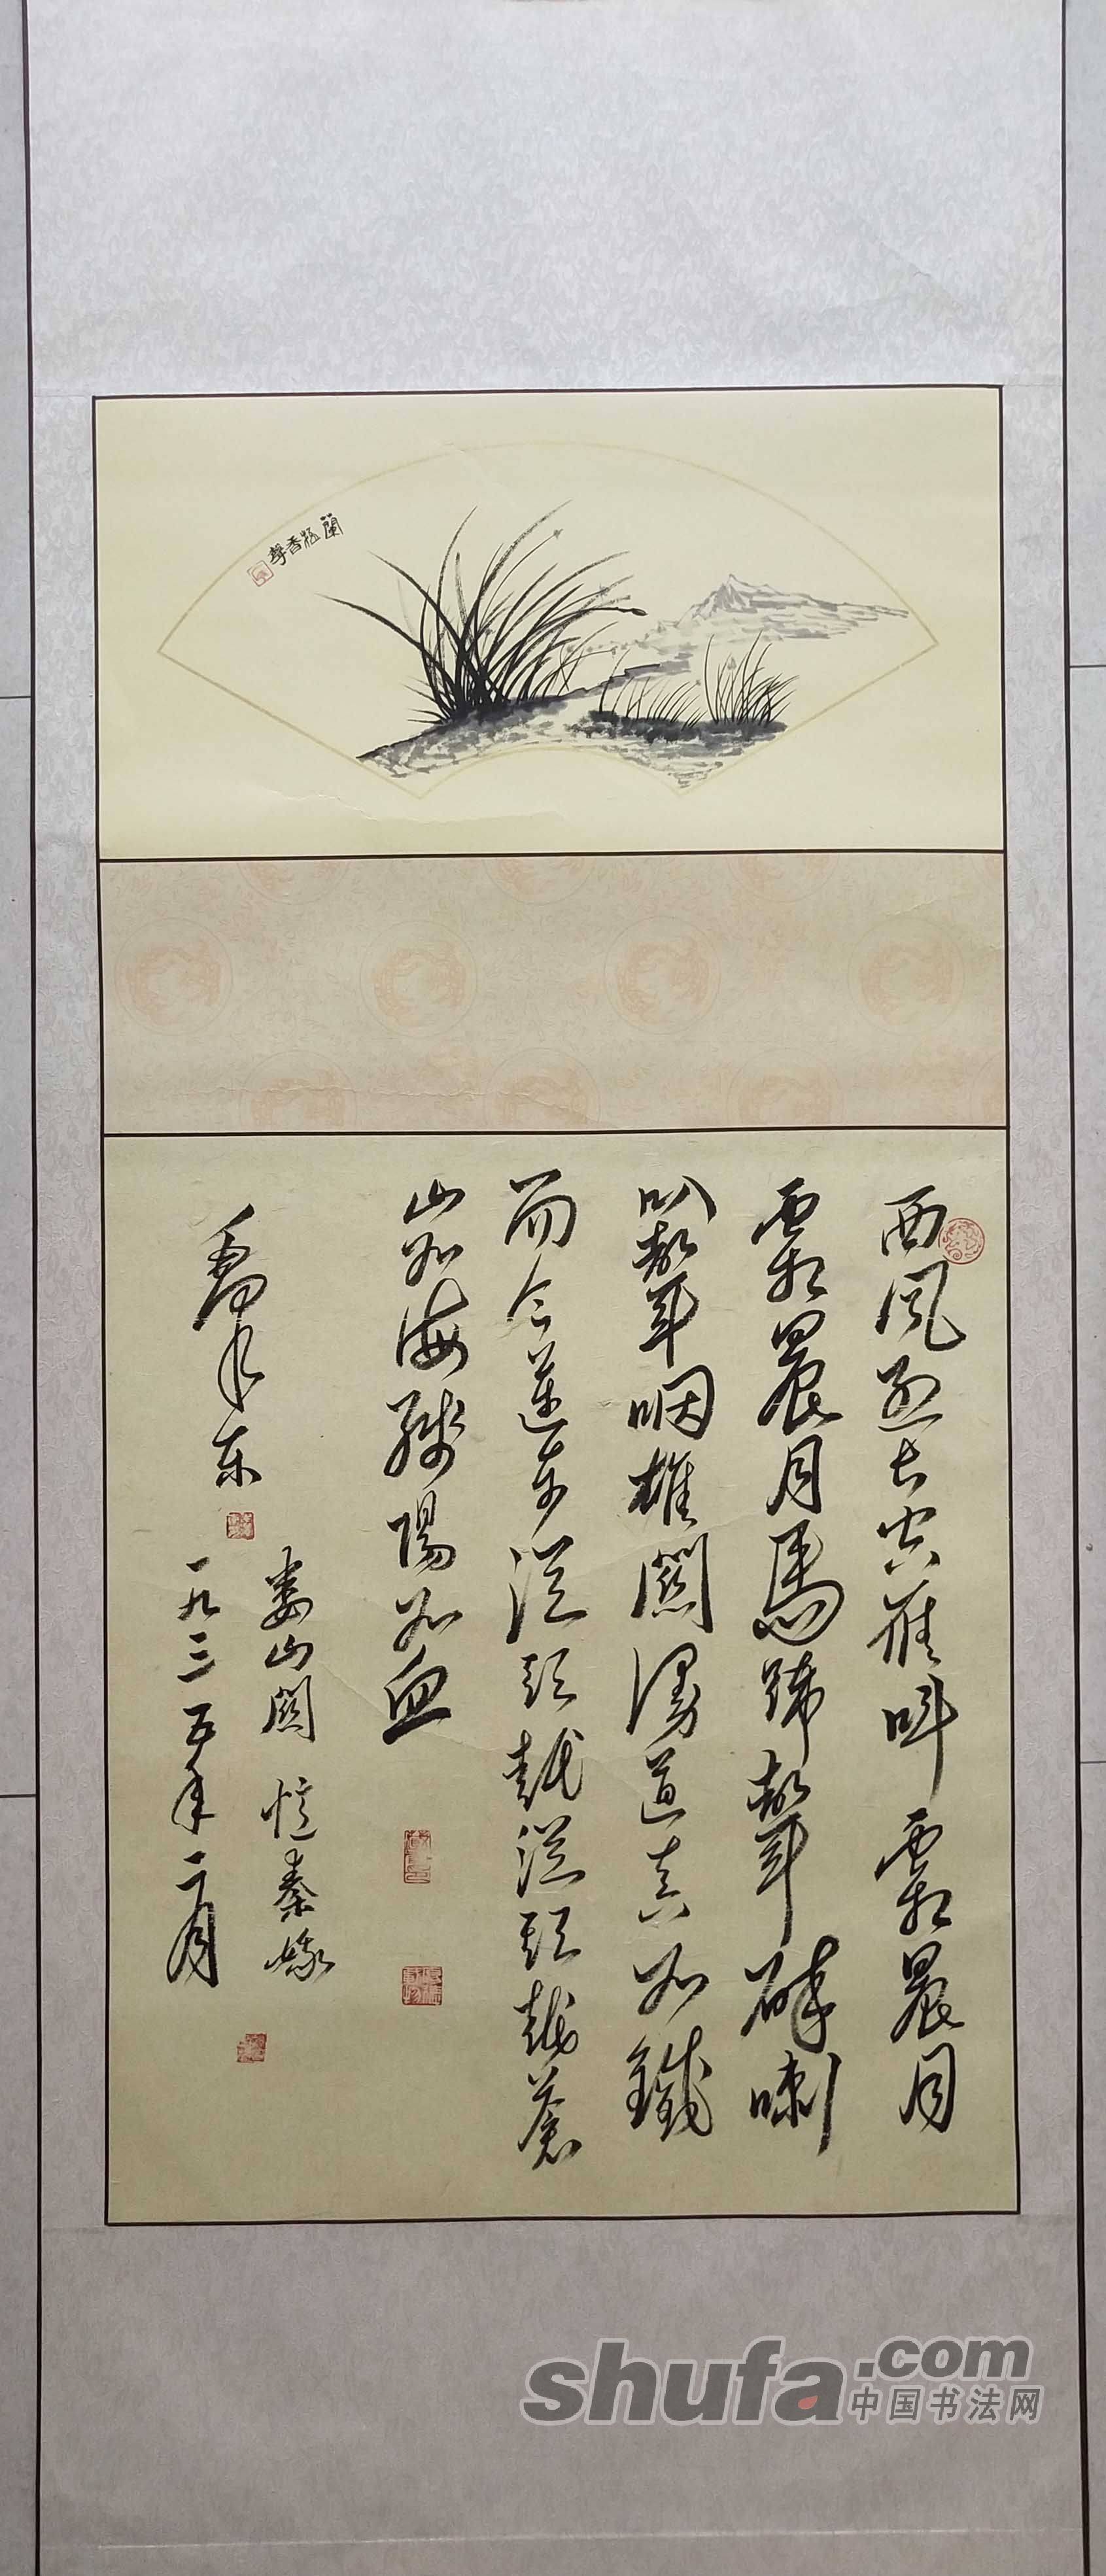 蘭
香
西風烈長空雁叫霜晨月
霜晨月馬蹄聲碎喇
叭聲咽雄關漫道真如鐵
而今邁步從頭越從頭越蒼
山如海殘陽如血
婁山關 憶秦娥
毛澤東
一九三五年二月
shufa.com
中国书法网